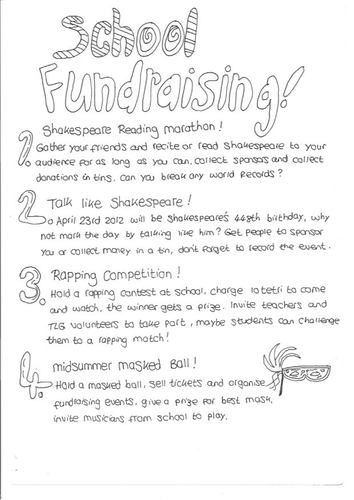 School
Fundraising!
1. Shakespeare Reading marathon!
Gather your friends and recite or read Shakespeare to your
audience for as long as you can, collect sponsors and collect
donations in tins. can you break any world Records?
2. Talk like Shakespeare!
April 23rd 2012 will be Shakespeare's 448th birthday, why
not mark the day by talking like him? Get people to sponsor
you or collect money in a tin, don't forget to record the event.
3. Rapping Competition!
Hold a rapping contest at school, charge 10 tetri to come
and watch, the winner gets a prize. Invite teachers and
TLG volunteers to take part, maybe students can challenge
them to a rapping match!
4. midsummer masked Ball!
Hold a masked ball, sell tickets and organise
fundraising events, give a prize for best mask,
invite musicians from school to play.